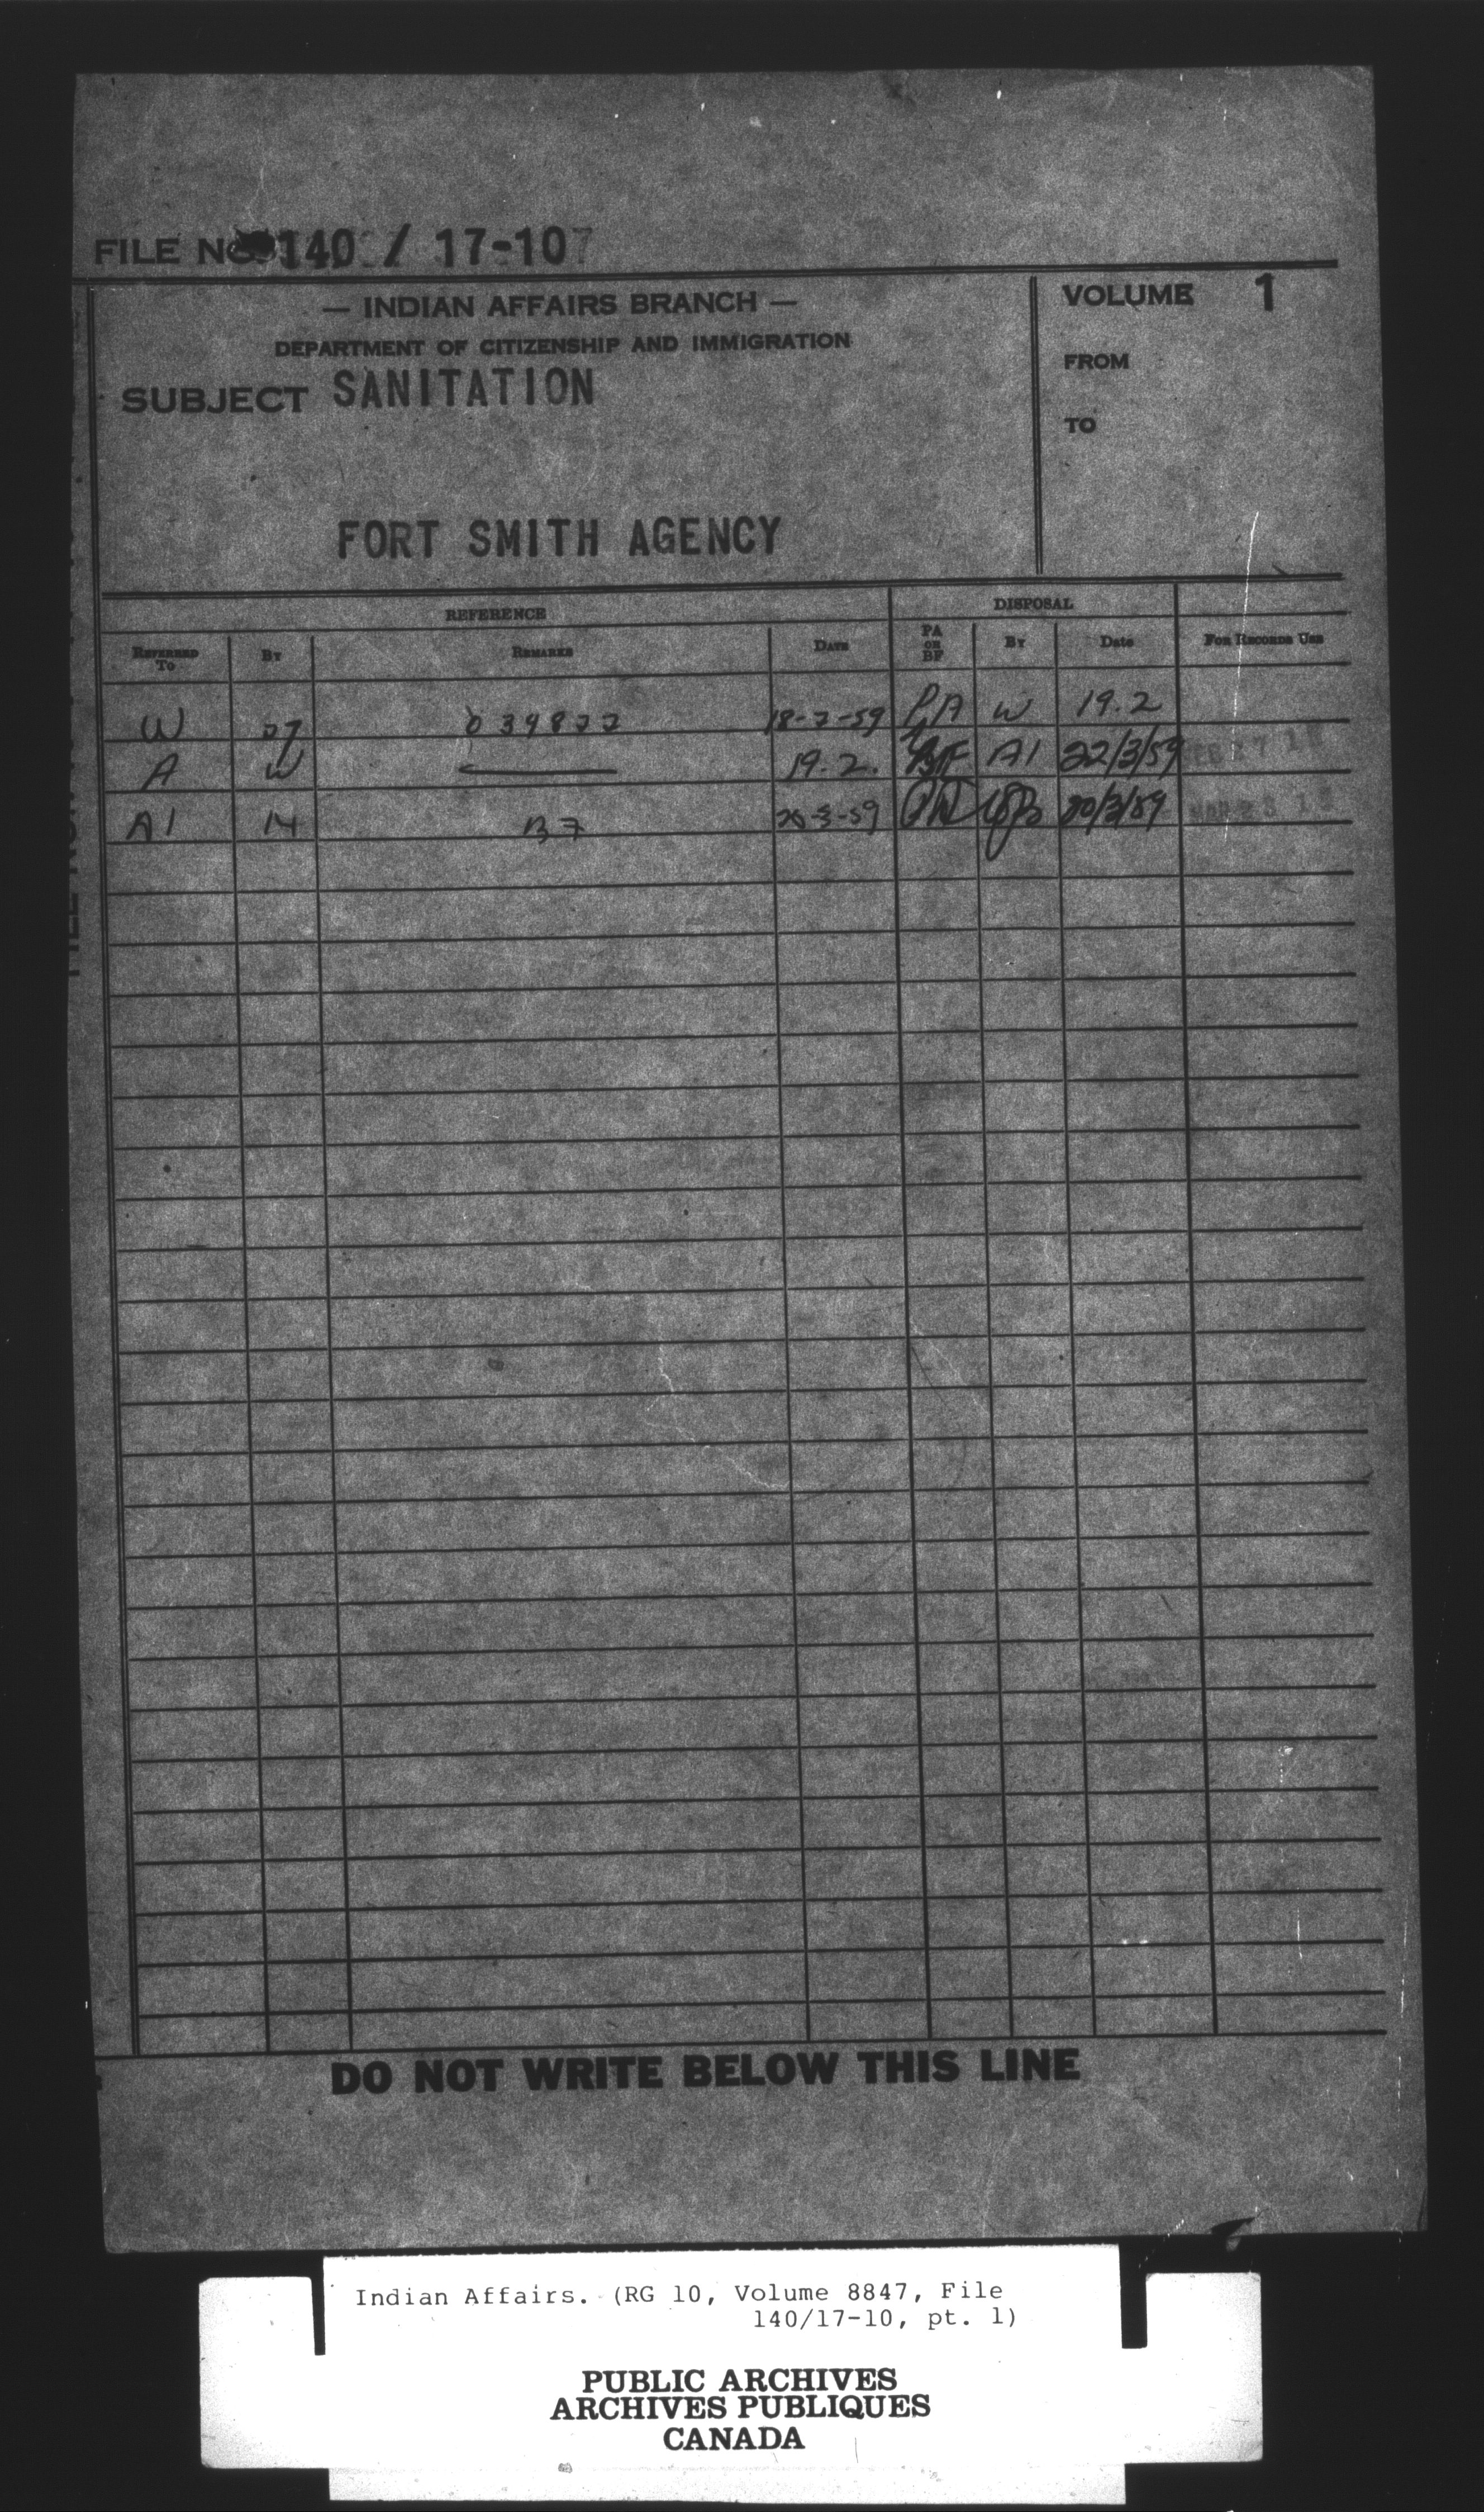 FILE No 140 / 17-10
— INDIAN AFFAIRS BRANCH —
DEPARTMENT OF CITIZENSHIP AND IMMIGRATION
SUBJECT SANITATION
FORT SMITH AGENCY
VOLUME 1
FROM
TO
REFERENCE
DISPOSAL
REFERRED TO
BY
REMARKS
DATE
PA OR BF
BY
Date
FOR RECORDS USE
W 27 18-2-59 PA W 19.2
A W 19.2. BF A1 22/3/59
A1 14 B7 20-3-59 20/3/59
DO NOT WRITE BELOW THIS LINE
Indian Affairs. (RG 10, Volume 8847, File
140/17-10, pt. 1)
PUBLIC ARCHIVES
ARCHIVES PUBLIQUES
CANADA